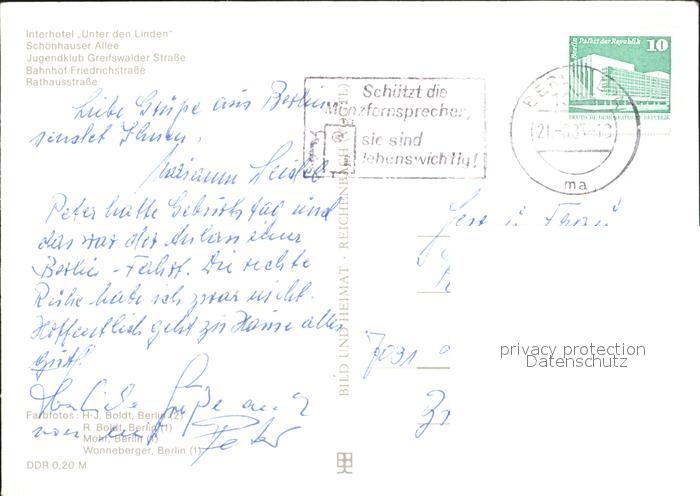 Interhotel „Unter den Linden"
Schönhauser Allee
Jugendklub Greifswalder Straße
Bahnhof Friedrichstraße
Rathausstraße
Liebe Grüße aus Berlin
sendet Ihnen,
Marianne
Peter hatte Geburtstag und
das war der Anlass einer
Berlin-Fahrt. Die rechte
Ruhe habe ich zwar nicht.
Hoffentlich geht zu Hause alles
gut!
Herzliche Grüße auch
von
Peter
Farbfotos: H-J. Boldt, Berlin (2)
R. Boldt, Berlin (1)
Mohr, Berlin (1)
Wonneberger, Berlin (1)
DDR 0,20 M
BILD UND HEIMAT · REICHENBACH (VOGTL)
Schützt die
Münzfernsprecher,
sie sind
lebenswichtig!
Berlin Palast der Republik
10
DEUTSCHE DEMOKRATISCHE REPUBLIK
ma
7031
privacy protection
Datenschutz